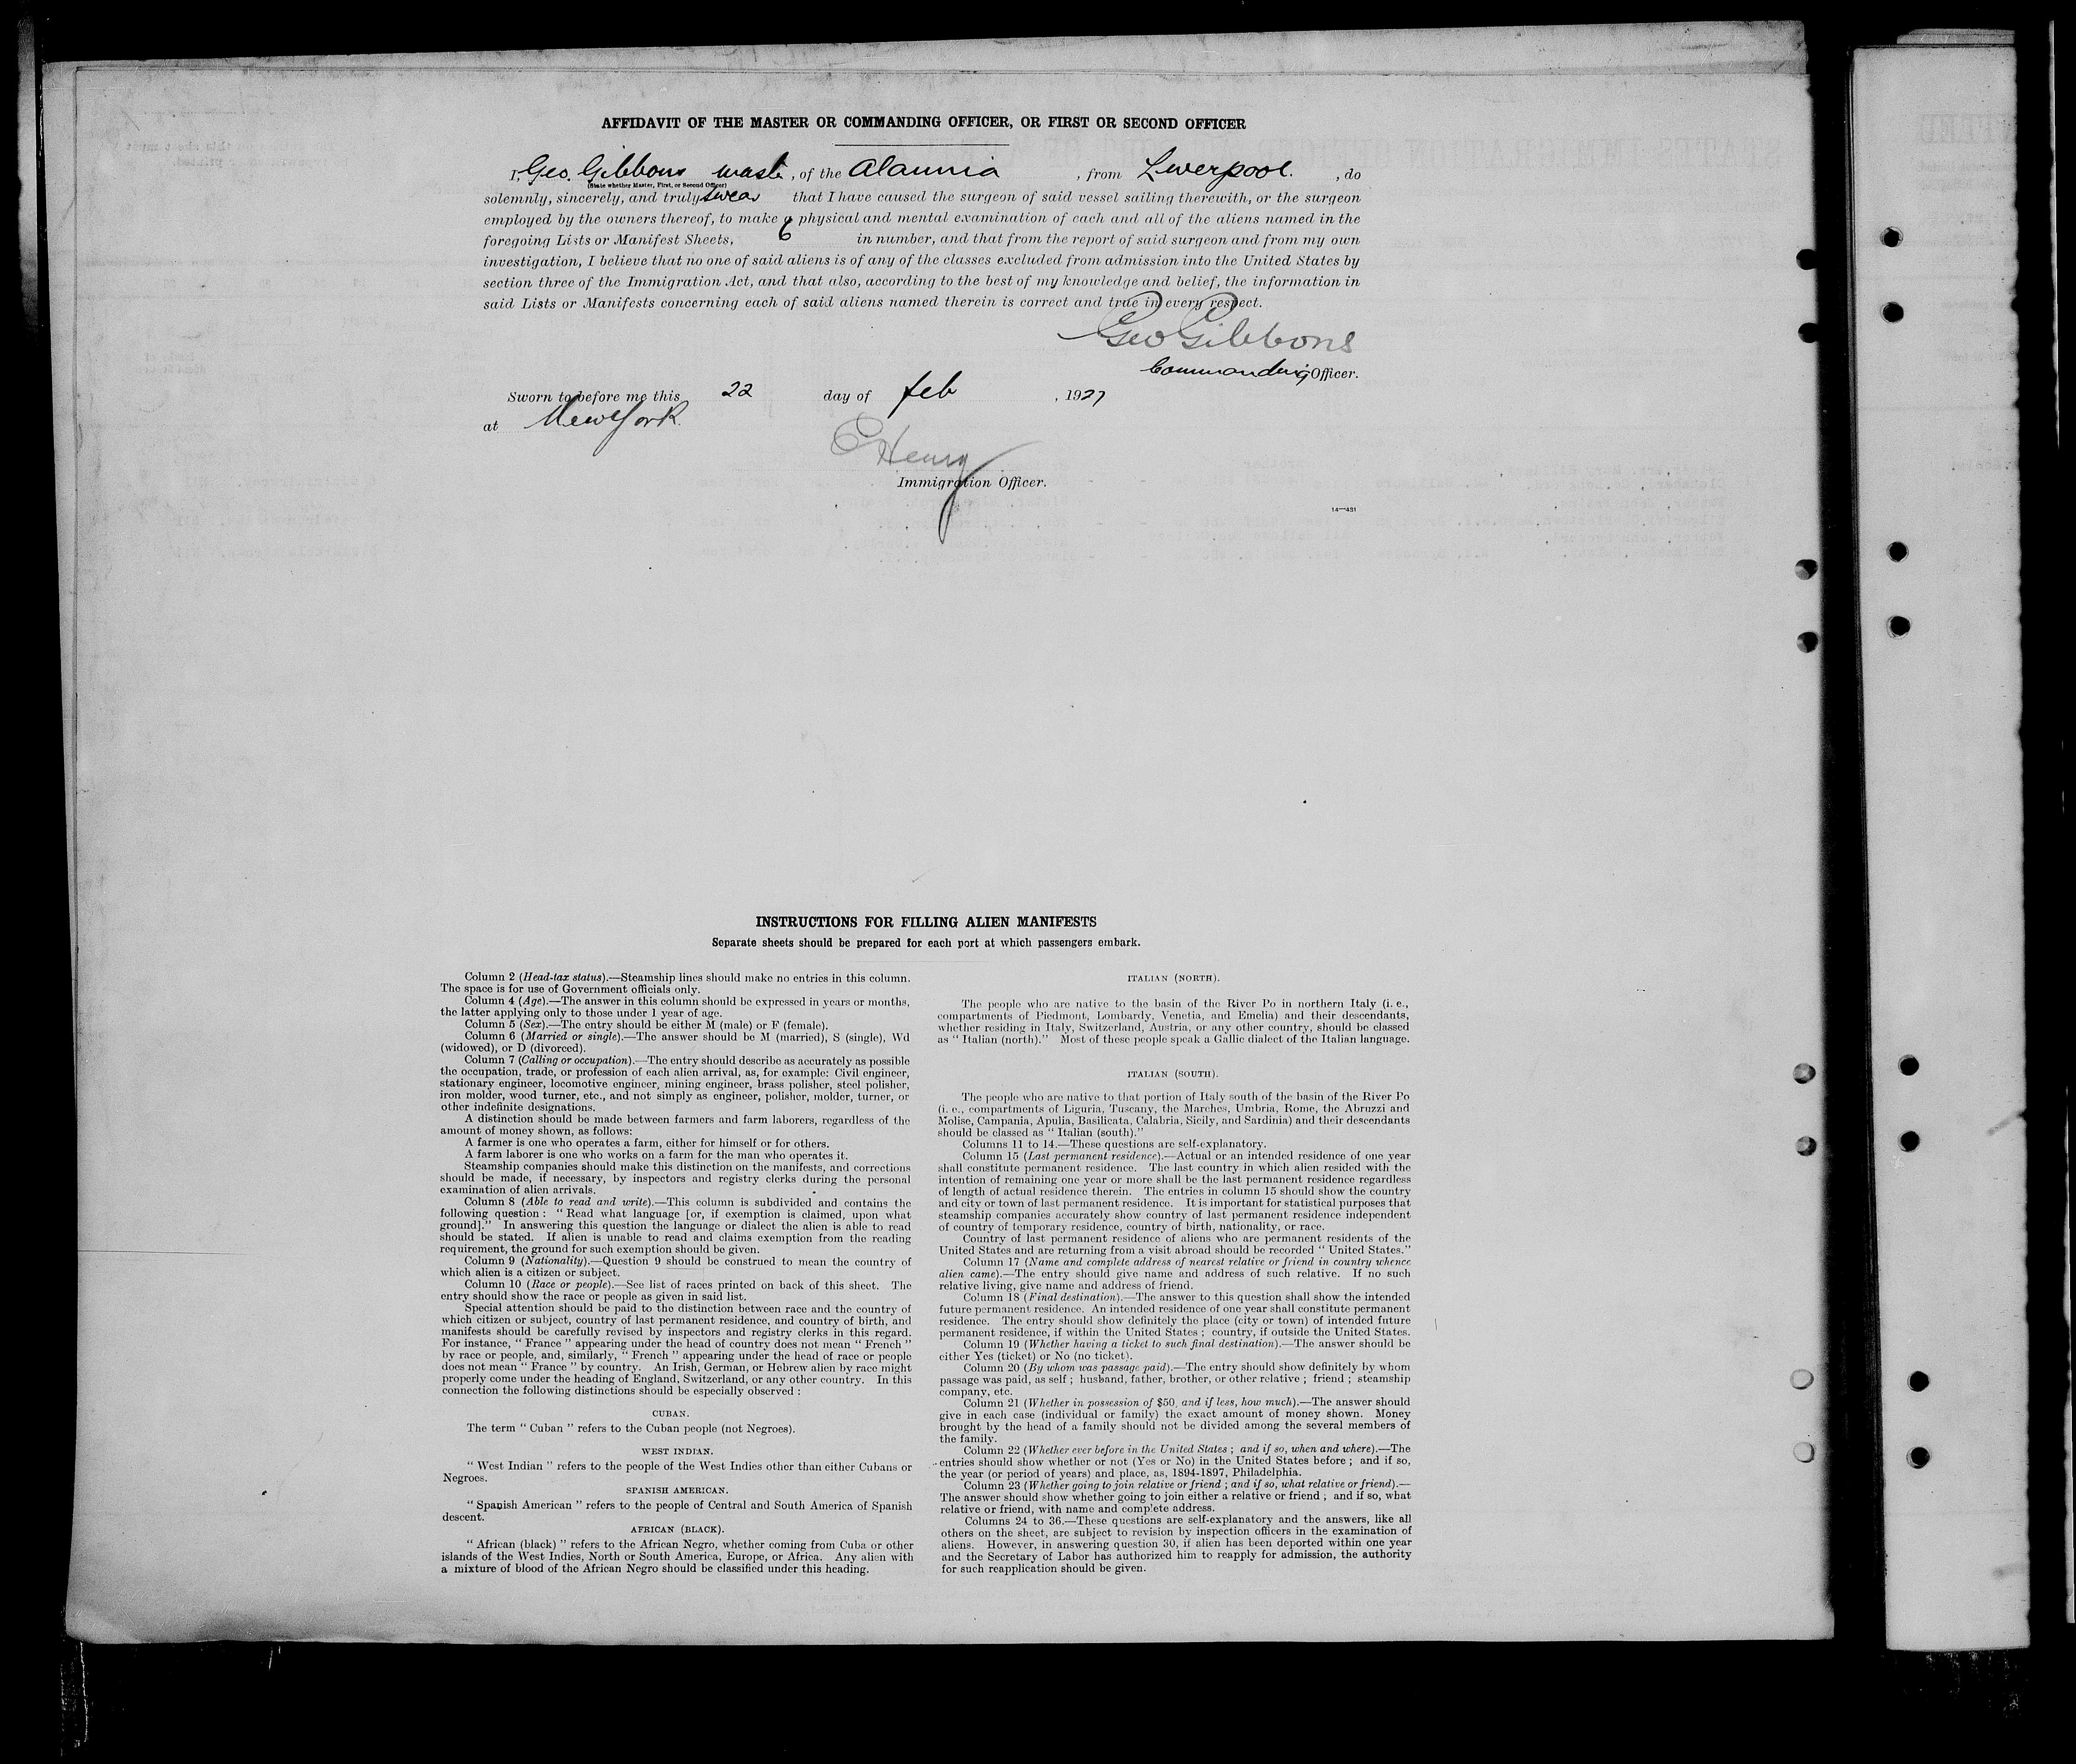 AFFIDAVIT OF THE MASTER OR COMMANDING OFFICER, OR FIRST OR SECOND OFFICER
I, Geo. Gibbons Master, of the Alaunia, from Liverpool., do
(State whether Master, First, or Second Officer)
solemnly, sincerely, and truly swear that I have caused the surgeon of said vessel sailing therewith, or the surgeon
employed by the owners thereof, to make a physical and mental examination of each and all of the aliens named in the
foregoing Lists or Manifest Sheets, 6 in number, and that from the report of said surgeon and from my own
investigation, I believe that no one of said aliens is of any of the classes excluded from admission into the United States by
section three of the Immigration Act, and that also, according to the best of my knowledge and belief, the information in
said Lists or Manifests concerning each of said aliens named therein is correct and true in every respect.
Geo Gibbons
Commanding Officer.
Sworn to before me this 22 day of feb, 1927
at New York.
Henry
Immigration Officer.
14—431
INSTRUCTIONS FOR FILLING ALIEN MANIFESTS
Separate sheets should be prepared for each port at which passengers embark.
Column 2 (Head-tax status).—Steamship lines should make no entries in this column.
The space is for use of Government officials only.
Column 4 (Age).—The answer in this column should be expressed in years or months,
the latter applying only to those under 1 year of age.
Column 5 (Sex).—The entry should be either M (male) or F (female).
Column 6 (Married or single).—The answer should be M (married), S (single), Wd
(widowed), or D (divorced).
Column 7 (Calling or occupation).—The entry should describe as accurately as possible
the occupation, trade, or profession of each alien arrival, as, for example: Civil engineer,
stationary engineer, locomotive engineer, mining engineer, brass polisher, steel polisher,
iron molder, wood turner, etc., and not simply as engineer, polisher, molder, turner, or
other indefinite designations.
A distinction should be made between farmers and farm laborers, regardless of the
amount of money shown, as follows:
A farmer is one who operates a farm, either for himself or for others.
A farm laborer is one who works on a farm for the man who operates it.
Steamship companies should make this distinction on the manifests, and corrections
should be made, if necessary, by inspectors and registry clerks during the personal
examination of alien arrivals.
Column 8 (Able to read and write).—This column is subdivided and contains the
following question: "Read what language [or, if exemption is claimed, upon what
ground]." In answering this question the language or dialect the alien is able to read
should be stated. If alien is unable to read and claims exemption from the reading
requirement, the ground for such exemption should be given.
Column 9 (Nationality).—Question 9 should be construed to mean the country of
which alien is a citizen or subject.
Column 10 (Race or people).—See list of races printed on back of this sheet. The
entry should show the race or people as given in said list.
Special attention should be paid to the distinction between race and the country of
which citizen or subject, country of last permanent residence, and country of birth, and
manifests should be carefully revised by inspectors and registry clerks in this regard.
For instance, "France" appearing under the head of country does not mean "French"
by race or people, and, similarly, "French" appearing under the head of race or people
does not mean "France" by country. An Irish, German, or Hebrew alien by race might
properly come under the heading of England, Switzerland, or any other country. In this
connection the following distinctions should be especially observed:
CUBAN.
The term "Cuban" refers to the Cuban people (not Negroes).
WEST INDIAN.
"West Indian" refers to the people of the West Indies other than either Cubans or
Negroes.
SPANISH AMERICAN.
"Spanish American" refers to the people of Central and South America of Spanish
descent.
AFRICAN (BLACK).
"African (black)" refers to the African Negro, whether coming from Cuba or other
islands of the West Indies, North or South America, Europe, or Africa. Any alien with
a mixture of blood of the African Negro should be classified under this heading.
ITALIAN (NORTH).
The people who are native to the basin of the River Po in northern Italy (i. e.,
compartments of Piedmont, Lombardy, Venetia, and Emelia) and their descendants,
whether residing in Italy, Switzerland, Austria, or any other country, should be classed
as "Italian (north)." Most of these people speak a Gallic dialect of the Italian language.
ITALIAN (SOUTH).
The people who are native to that portion of Italy south of the basin of the River Po
(i. e., compartments of Liguria, Tuscany, the Marches, Umbria, Rome, the Abruzzi and
Molise, Campania, Apulia, Basilicata, Calabria, Sicily, and Sardinia) and their descendants
should be classed as "Italian (south)."
Columns 11 to 14.—These questions are self-explanatory.
Column 15 (Last permanent residence).—Actual or an intended residence of one year
shall constitute permanent residence. The last country in which alien resided with the
intention of remaining one year or more shall be the last permanent residence regardless
of length of actual residence therein. The entries in column 15 should show the country
and city or town of last permanent residence. It is important for statistical purposes that
steamship companies accurately show country of last permanent residence independent
of country of temporary residence, country of birth, nationality, or race.
Country of last permanent residence of aliens who are permanent residents of the
United States and are returning from a visit abroad should be recorded "United States."
Column 17 (Name and complete address of nearest relative or friend in country whence
alien came).—The entry should give name and address of such relative. If no such
relative living, give name and address of friend.
Column 18 (Final destination).—The answer to this question shall show the intended
future permanent residence. An intended residence of one year shall constitute permanent
residence. The entry should show definitely the place (city or town) of intended future
permanent residence, if within the United States; country, if outside the United States.
Column 19 (Whether having a ticket to such final destination).—The answer should be
either Yes (ticket) or No (no ticket).
Column 20 (By whom was passage paid).—The entry should show definitely by whom
passage was paid, as self; husband, father, brother, or other relative; friend; steamship
company, etc.
Column 21 (Whether in possession of $50, and if less, how much).—The answer should
give in each case (individual or family) the exact amount of money shown. Money
brought by the head of a family should not be divided among the several members of
the family.
Column 22 (Whether ever before in the United States; and if so, when and where).—The
entries should show whether or not (Yes or No) in the United States before; and if so,
the year (or period of years) and place, as, 1894-1897, Philadelphia.
Column 23 (Whether going to join relative or friend; and if so, what relative or friend).—
The answer should show whether going to join either a relative or friend; and if so, what
relative or friend, with name and complete address.
Columns 24 to 36.—These questions are self-explanatory and the answers, like all
others on the sheet, are subject to revision by inspection officers in the examination of
aliens. However, in answering question 30, if alien has been deported within one year
and the Secretary of Labor has authorized him to reapply for admission, the authority
for such reapplication should be given.